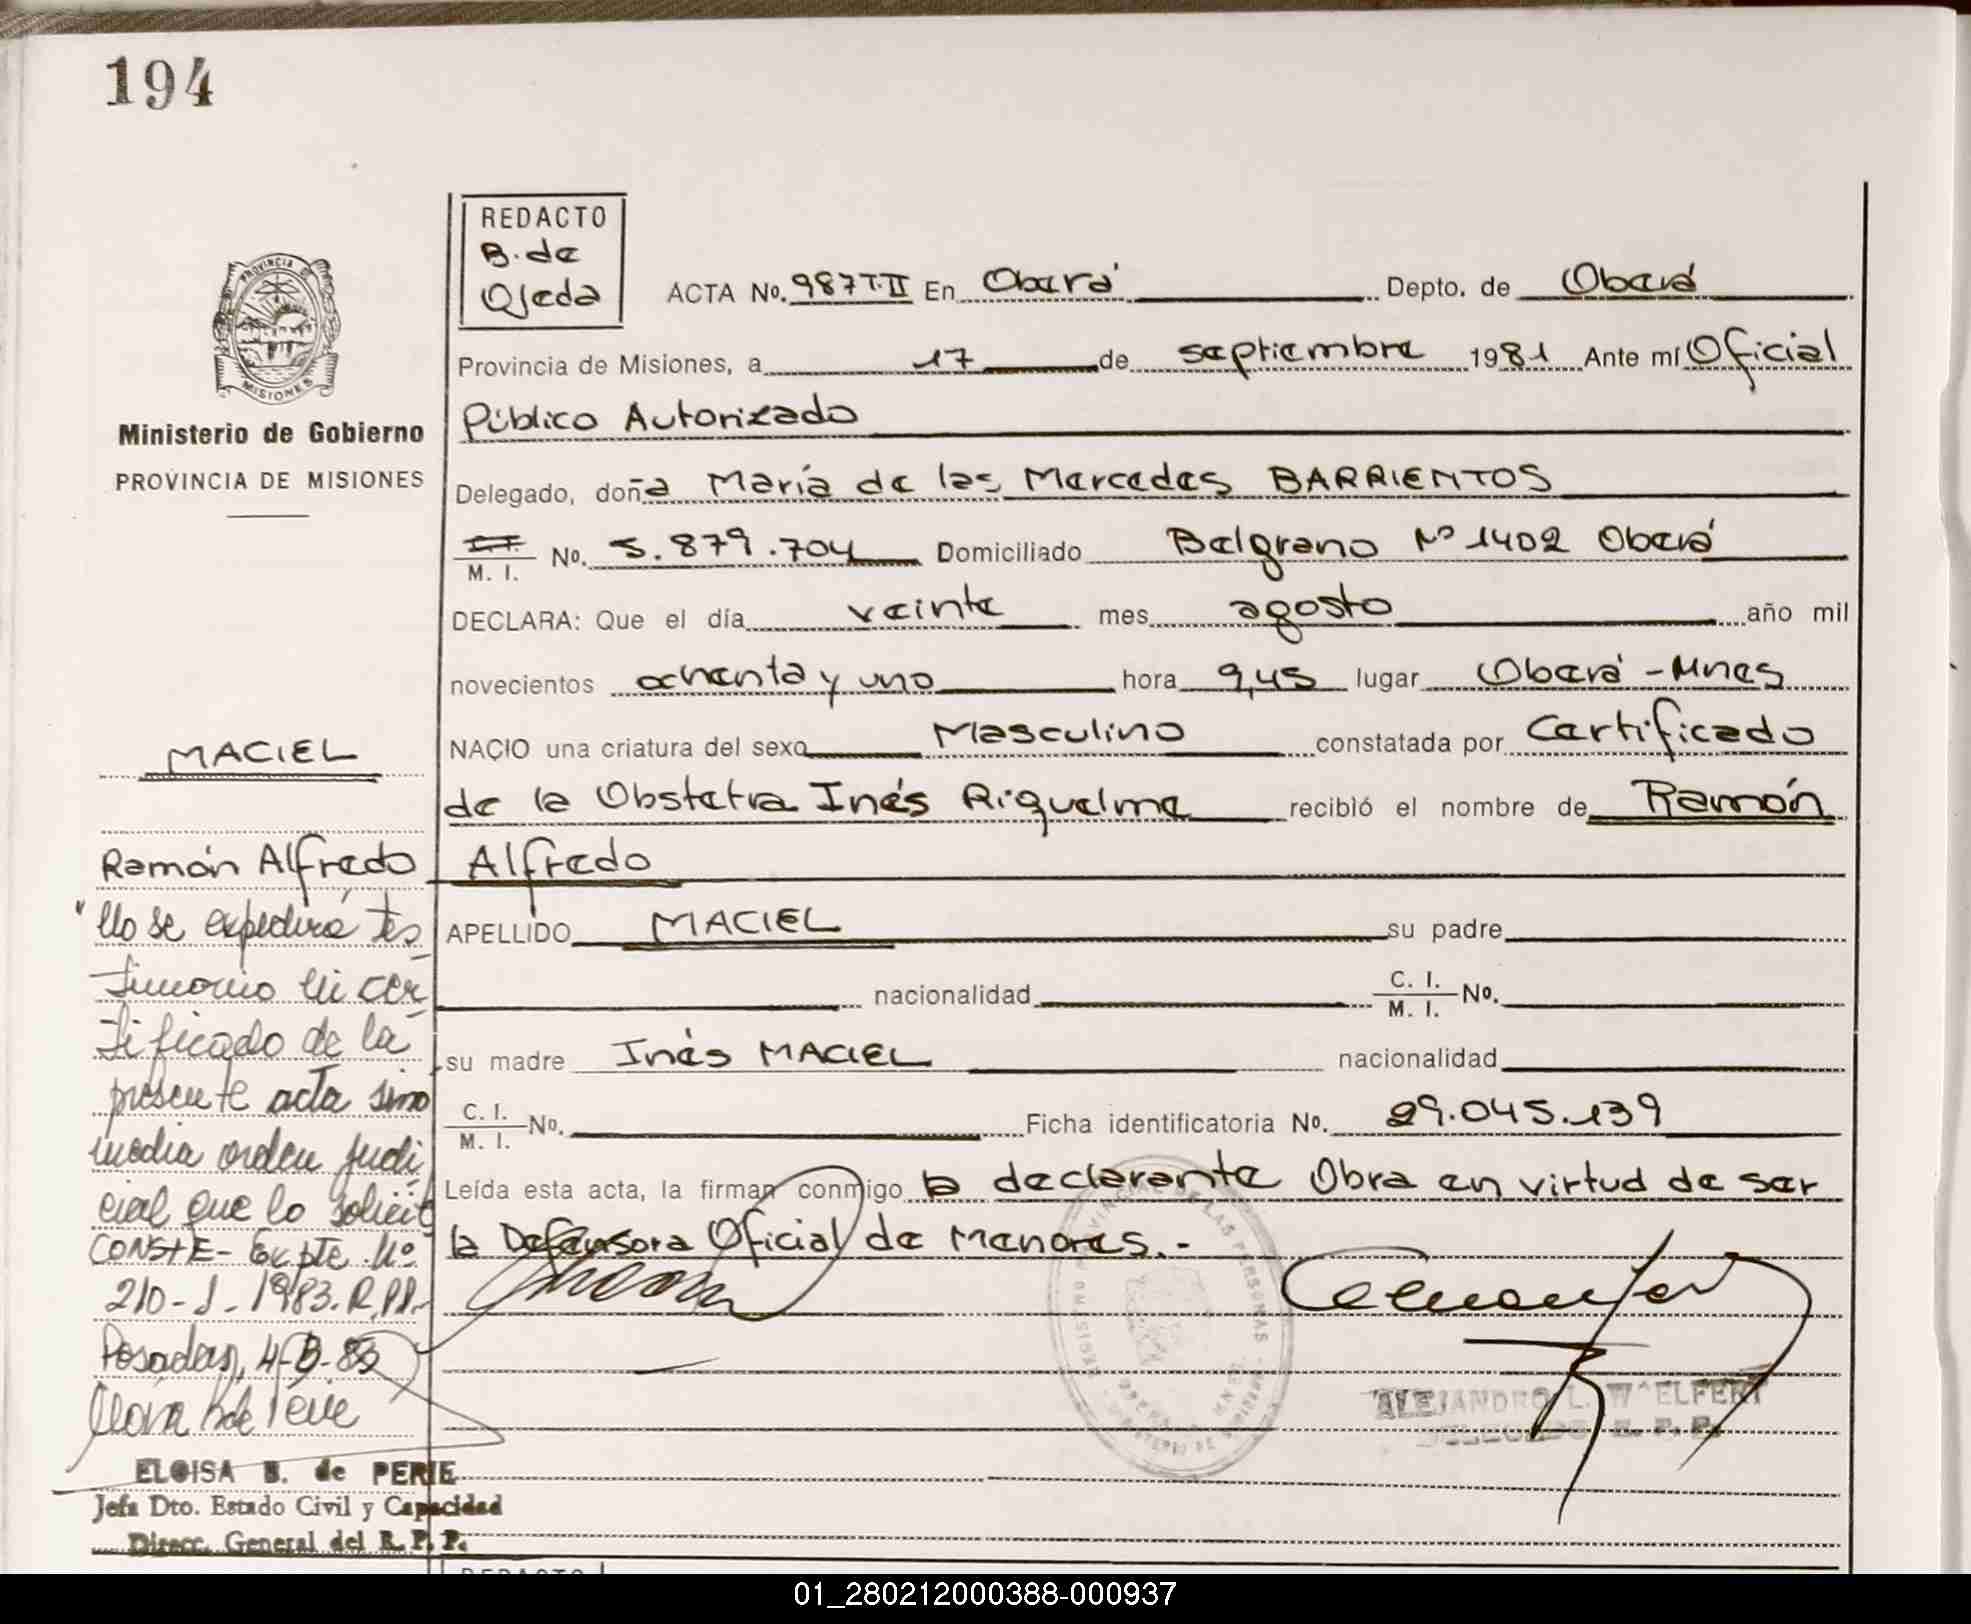 194
REDACTO
B. de
Ojeda
ACTA No. 987 T. II En Oberá Depto. de Oberá
Provincia de Misiones, a 17 de septiembre 1981 Ante mí Oficial
Público Autorizado
Delegado, doña María de las Mercedes BARRIENTOS
C. I.
M. I. No. 5.879.704 Domiciliado Belgrano Nº 1402 Oberá
DECLARA: Que el día veinte mes agosto año mil
novecientos ochenta y uno hora 9,45 lugar Oberá - Mnes
NACIO una criatura del sexo Masculino constatada por Certificado
de la Obstetra Inés Riquelme recibió el nombre de Ramón
Alfredo
APELLIDO MACIEL su padre
nacionalidad C. I. M. I. No.
su madre Inés MACIEL nacionalidad
C. I. M. I. No. Ficha identificatoria No. 29.045.139
Leída esta acta, la firman conmigo la declarante Obra en virtud de ser
la Defensora Oficial de Menores.-
ALEJANDRO L. WELFERT
DELEGADO R. P. P.
PROVINCIA DE
MISIONES
Ministerio de Gobierno
PROVINCIA DE MISIONES
MACIEL
Ramón Alfredo
"No se expedirá tes
timonio ni cer
tificado de la
presente acta sino
media orden judi
cial que lo solicit
CONSTE - Expte. Nº
210-J-1983. R.P.P.-
Posadas, 4-8-83
ELOISA B. de PERIE
Jefa Dto. Estado Civil y Capacidad
Direcc. General del R. P. P.
REDACTO
01_280212000388-000937